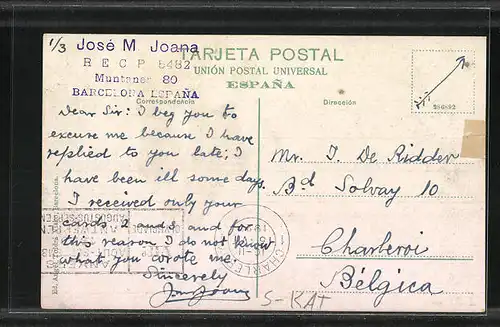 1/3
José M Joana
RECP 5482
Muntaner 80
BARCELONA ESPAÑA
TARJETA POSTAL
UNIÓN POSTAL UNIVERSAL
ESPAÑA
Correspondencia
Dirección
Dear Sir: I beg you to
excuse me because I have
replied to you late; I
have been ill some days.
I received only your
cards 2 and 3 and for
this reason I do not know
what you wrote me.
Sincerely
Mr. I. De Ridder
Bd Solvay 10
Charleroi
Bélgica
CHARLE
S-KAT